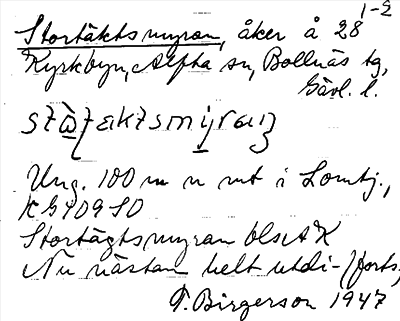 1-2
Stortäktsmyran, åker å 28
Kyrkbyn, Alfta sn, Bollnäs tg,
Gävl. l.
Ung. 100 m n mt i Lomtj.,
K G 409 SO
Stortägtsmyran OlsAK
Nu nästan helt utdi- (forts,
T. Birgerson 1947